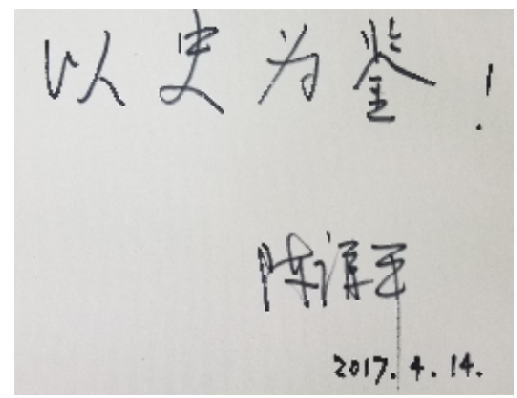 以史为鉴！
陈谆平
2017.4.14.